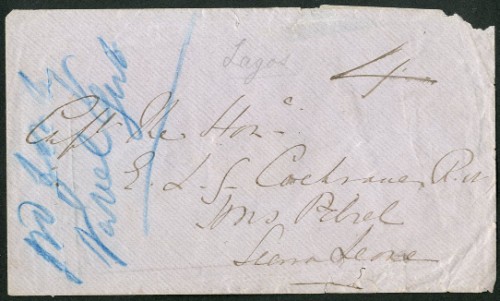 Lagos
4
Capt The Honᵉ
E. L. G. Cochrane R.N
HMS Petrel
Sierra Leone